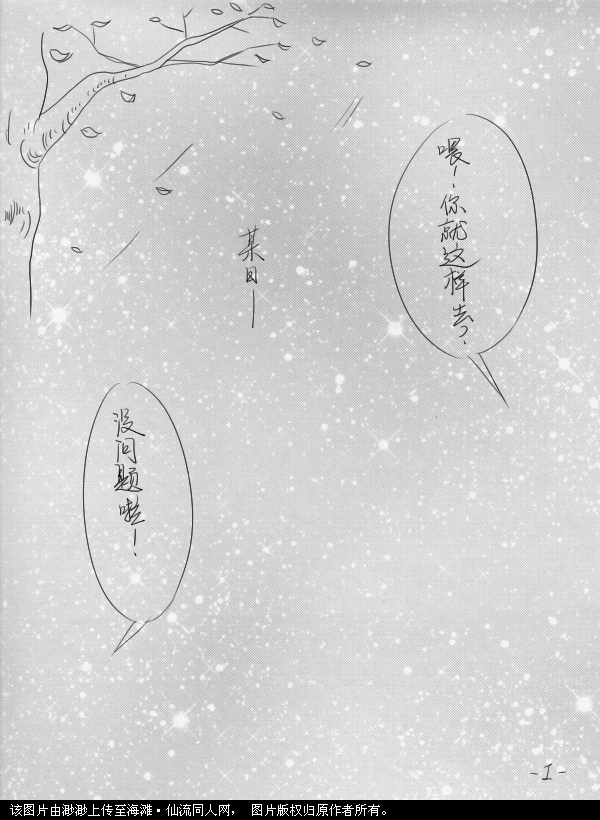 喂！你就这样去？
某日—
没问题啦！
-I-
该图片由渺渺上传至海滩·仙流同人网， 图片版权归原作者所有。